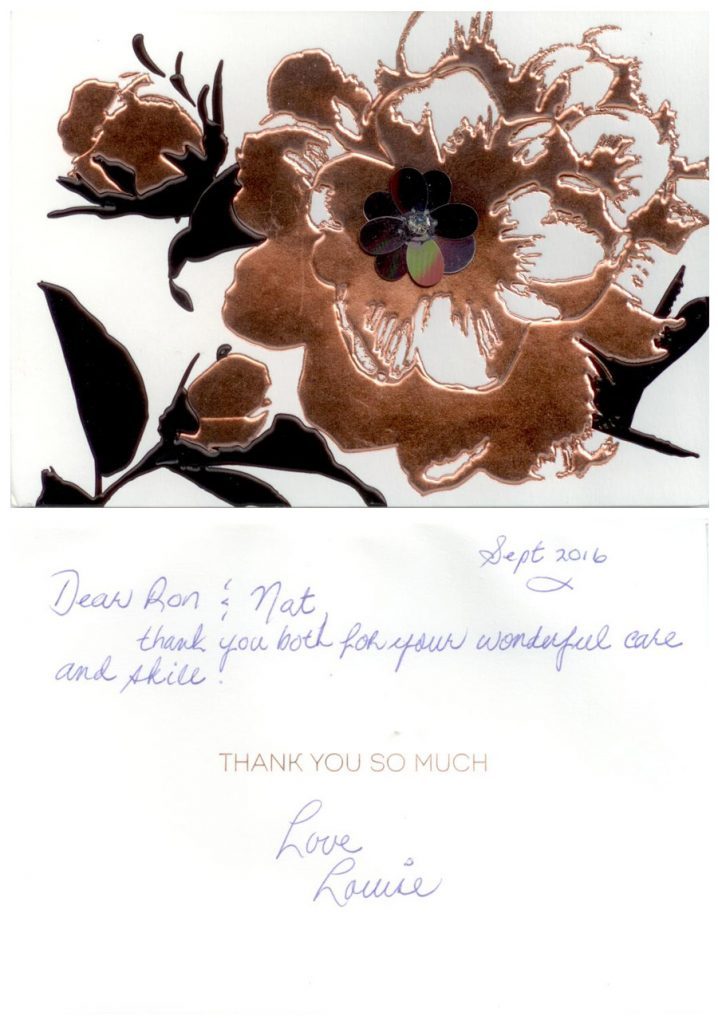 Sept 2016
Dear Ron & Nat,
thank you both for your wonderful care
and skill!
THANK YOU SO MUCH
Love
Louise